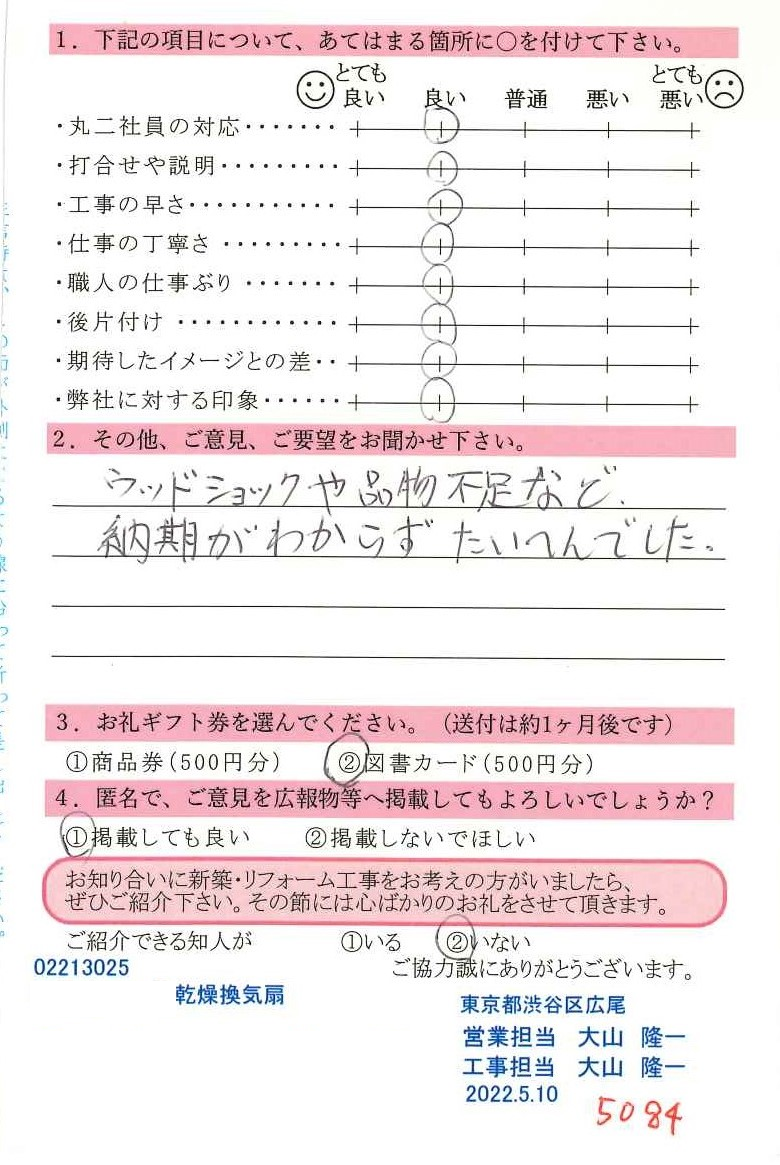 1．下記の項目について、あてはまる箇所に○を付けて下さい。
とても良い 良い 普通 悪い とても悪い
・丸二社員の対応・・・・・・・
・打合せや説明・・・・・・・・・
・工事の早さ・・・・・・・・・・・
・仕事の丁寧さ・・・・・・・・・
・職人の仕事ぶり・・・・・・・
・後片付け・・・・・・・・・・・・
・期待したイメージとの差・・
・弊社に対する印象・・・・・・
2．その他、ご意見、ご要望をお聞かせ下さい。
ウッドショックや品物不足など、
納期がわからずたいへんでした。
3．お礼ギフト券を選んでください。（送付は約1ヶ月後です）
①商品券（500円分） ②図書カード（500円分）
4．匿名で、ご意見を広報物等へ掲載してもよろしいでしょうか？
①掲載しても良い ②掲載しないでほしい
お知り合いに新築・リフォーム工事をお考えの方がいましたら、
ぜひご紹介下さい。その節には心ばかりのお礼をさせて頂きます。
ご紹介できる知人が ①いる ②いない
ご協力誠にありがとうございます。
02213025
乾燥換気扇
東京都渋谷区広尾
営業担当 大山 隆一
工事担当 大山 隆一
2022.5.10
5084